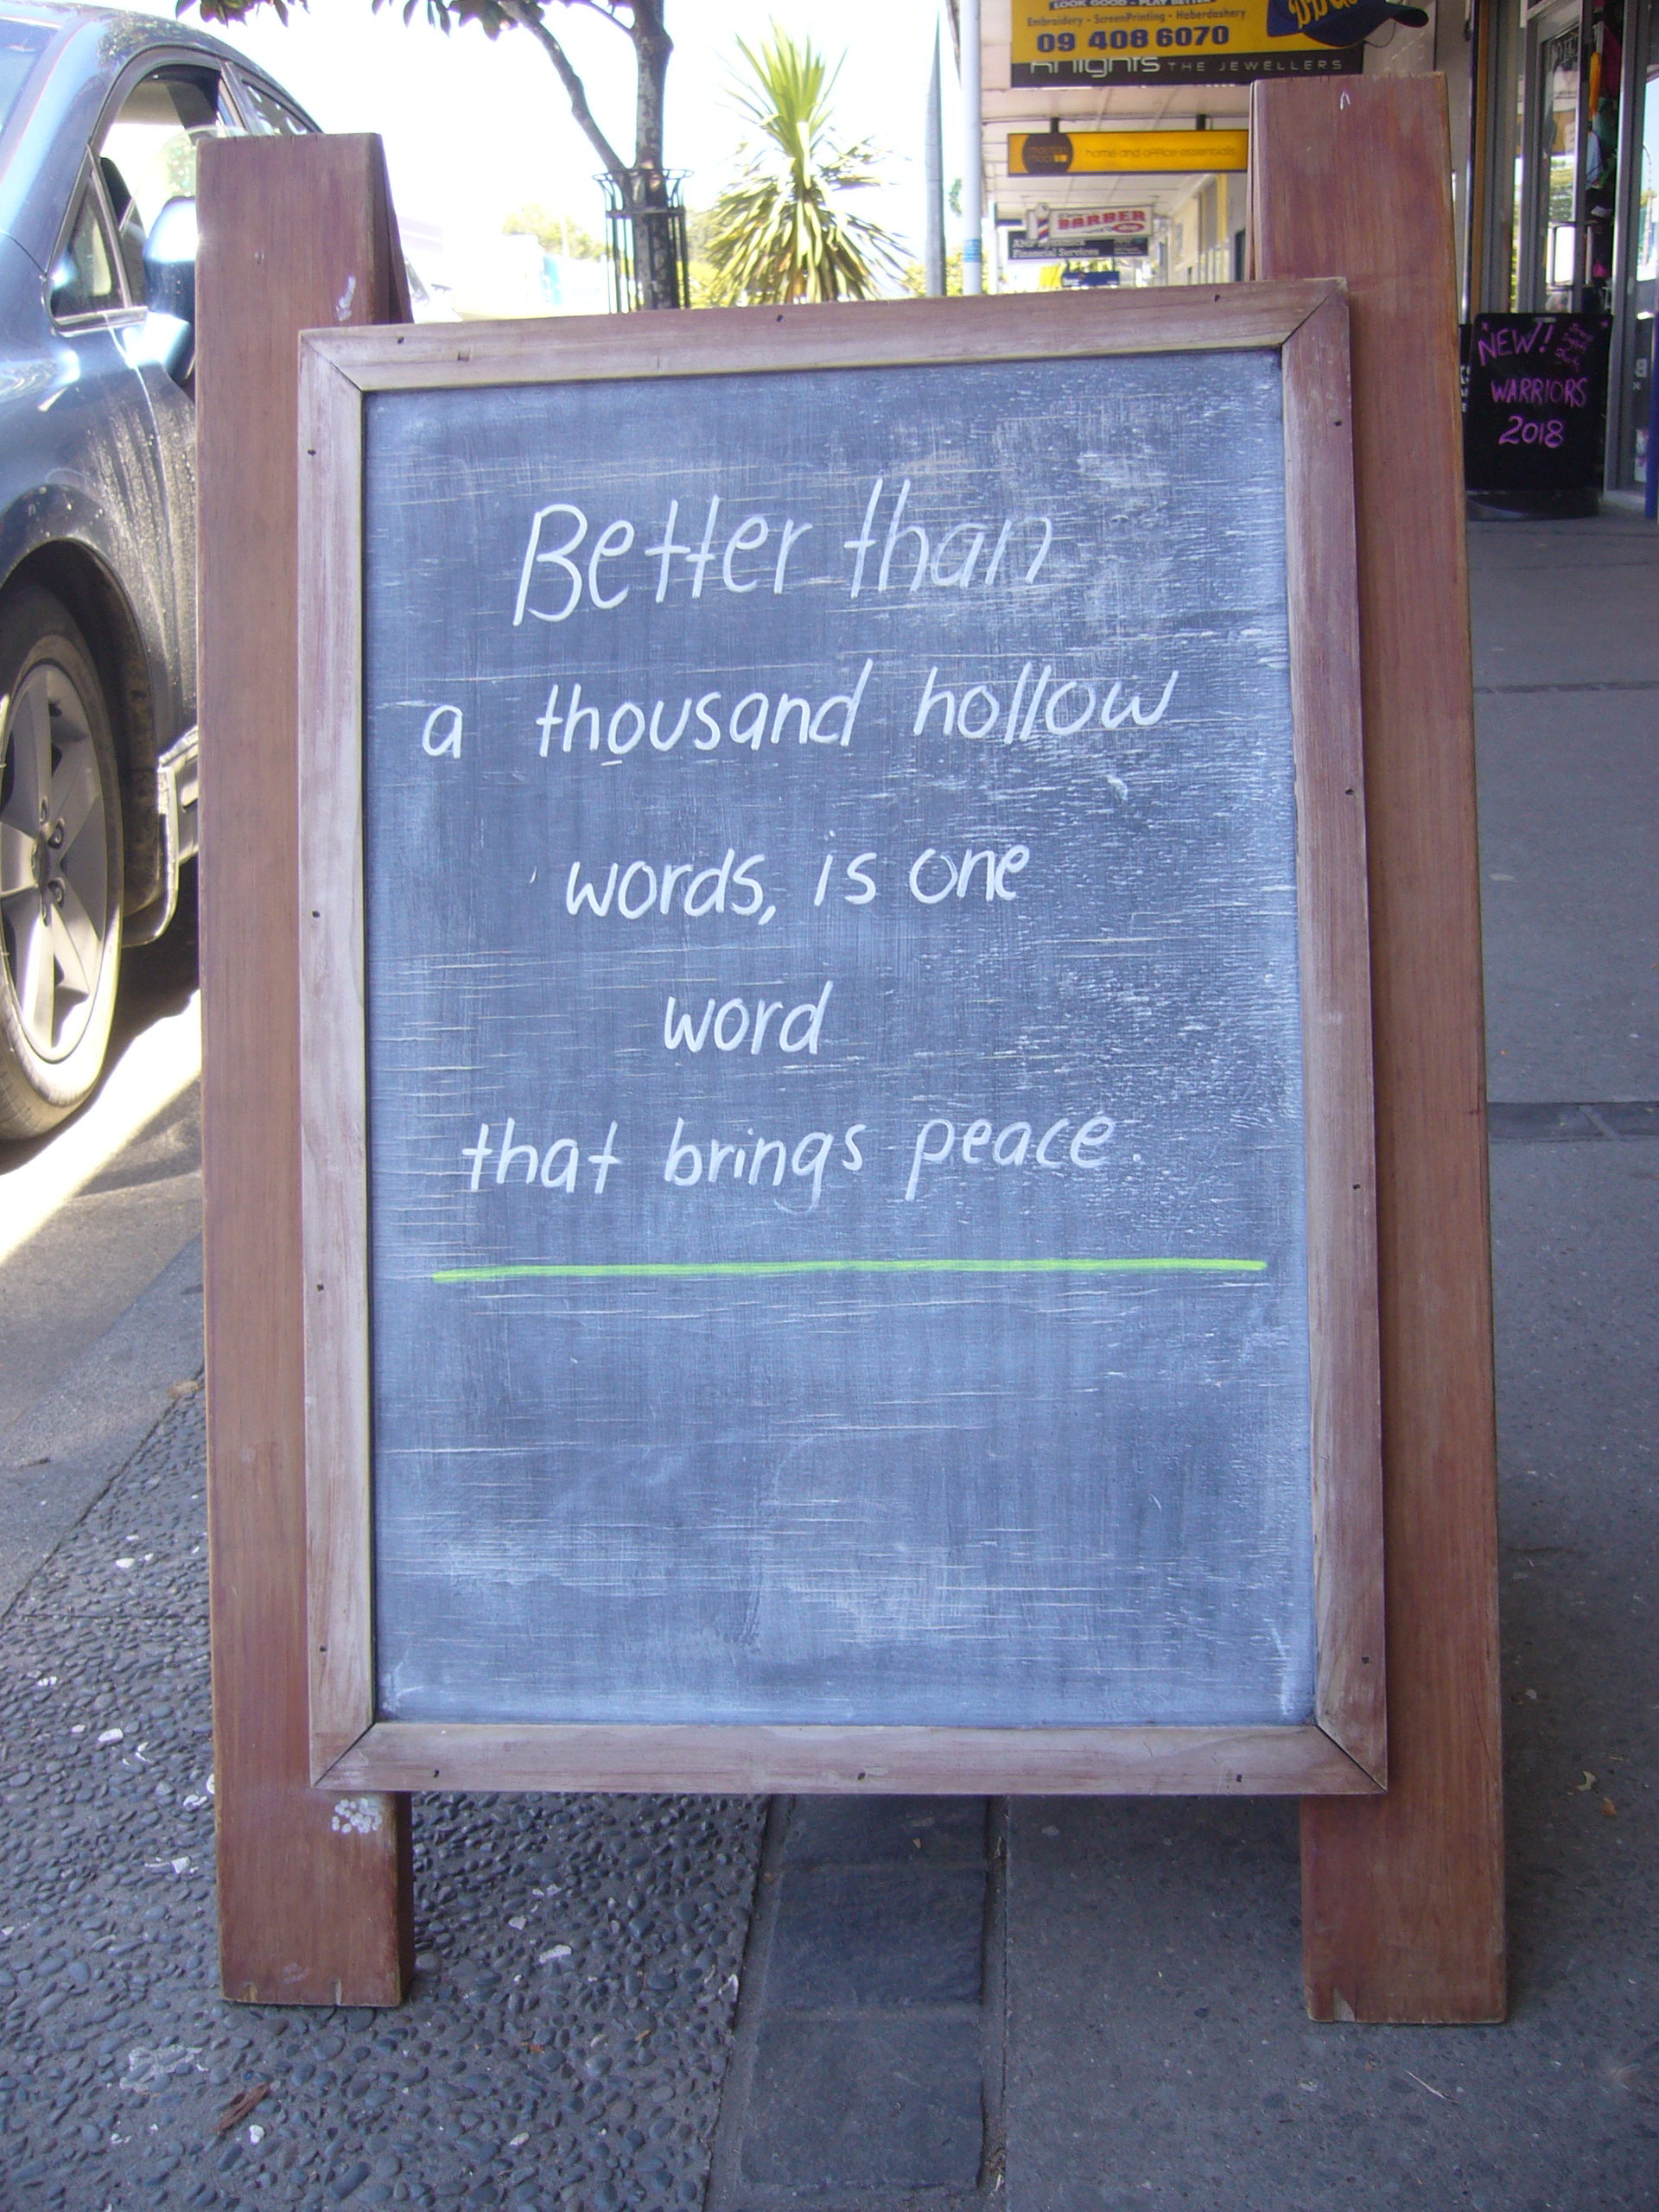 LOOK GOOD - PLAY BETTER
Embroidery - ScreenPrinting - Haberdashery
09 408 6070
Knights THE JEWELLERS
home and office essentials
BARBER
Financial Services
NEW!
WARRIORS
2018
Better than
a thousand hollow
words, is one
word
that brings peace.